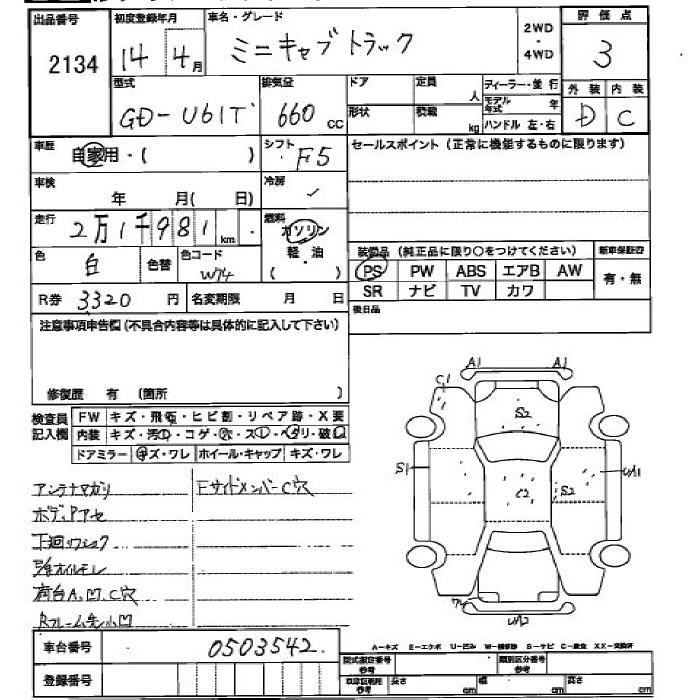 出品番号
2134
初度登録年月
14年 4月
車名・グレード
ミニキャブトラック
2WD
・
4WD
評価点
3
型式
GD-U61T
排気量
660 cc
ドア
形状
定員
人
積載
kg
ディーラー・並行
モデル年式 年
ハンドル 左・右
外装
D
内装
C
車歴
自家用・( )
シフト
F5
セールスポイント(正常に機能するものに限ります)
車検
年 月( 日)
冷房
走行
2万1千981 km
燃料
ガソリン
軽・油
色
白
色替
色コード
W74
装備品(純正品に限り○をつけてください)
新車保証書
PS PW ABS エアB AW
有・無
SR ナビ TV カワ
R券 3320 円
名変期限 月 日
後日品
注意事項申告欄(不具合内容等は具体的に記入して下さい)
修復歴 有 (箇所 )
検査員
記入欄
FW キズ・飛石・ヒビ割・リペア跡・X要
内装 キズ・汚レ・コゲ・穴・スレ・ヘタリ・破レ
ドアミラー キズ・ワレ ホイール・キャップ キズ・ワレ
アンテナマガリ
Fサイドメンバー C穴
ボディPアセ
下廻ワシュク
荷台A、凹、C穴
Rフレーム先小凹
A1
A1
C1
S2
S1
C2
S2
U/A1
U/A2
車台番号
0503542
登録番号
A-キズ E-エクボ U-凹み W-補修跡 S-サビ C-腐食 XX-交換済
型式指定番号
参考
類別区分番号
参考
長さ cm
幅 cm
高さ cm